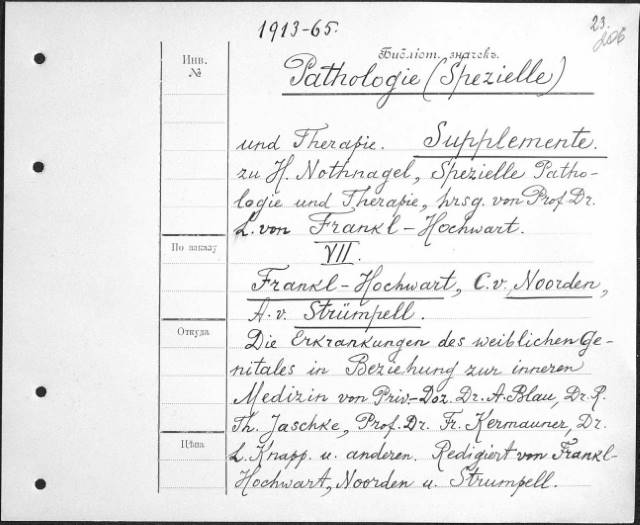 1913-65.
23.
Инв.
№
Библіот. значекъ.
Pathologie (Spezielle)
und Therapie. Supplemente.
zu H. Nothnagel, Spezielle Patho-
logie und Therapie, hrsg. von Prof. Dr.
L. von Frankl-Hochwart.
По заказу
VII.
Frankl-Hochwart, C. v. Noorden,
A. v. Strümpell.
Откуда
Die Erkrankungen des weiblichen Ge-
nitales in Beziehung zur inneren
Medizin von Priv.-Doz. Dr. A. Blau, Dr. R.
Th. Jaschke, Prof. Dr. Fr. Kermauner, Dr.
Цѣна
L. Knapp. u. anderen. Redigiert von Frankl-
Hochwart, Noorden u. Strumpell.